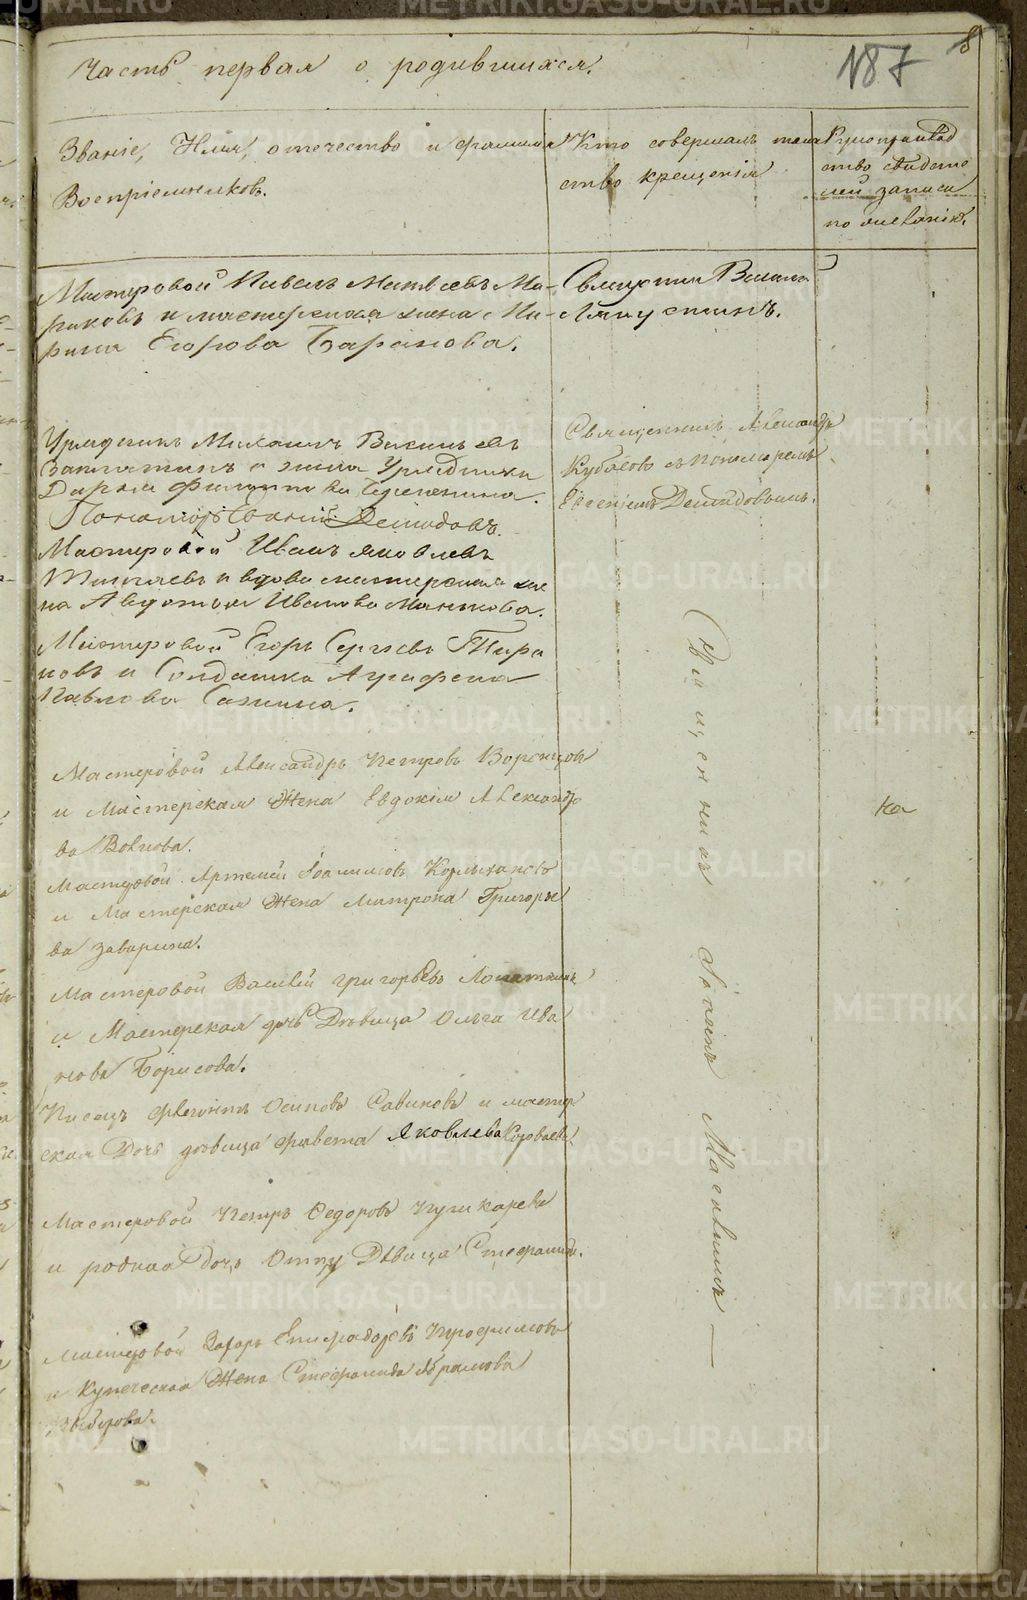 Часть первая о родившихся.
187
8
Званіе, Имя, отечество и фамилія
Воспріемниковъ.
Кто совершалъ таин
ство крещенія
Рукоприклад
ство свидѣте
лей записи
по желанію.
Мастеровой Павелъ Матвѣевъ Ма-
риковъ и мастерская жена Ма-
рина Егорова Баранова.
Священникъ Василій
Урядникъ Михаилъ Васильевъ
Заплатинъ и жена Урядника
Дарья Филиппова
Пономарь Іоаннъ Демидовъ.
Священникъ Александръ
Кубасовъ съ пономаремъ
Евгеніемъ Демидовымъ.
Мастеровой Иванъ Яковлевъ
и вдова мастерская же
на Авдотья Иванова Манькова.
Мастеровой Егоръ Сергѣевъ Тира
новъ и Солдатка Аграфена
Павлова Санина.
Мастеровой Александръ Петровъ Воронцовъ
и Мастерская Жена Евдокія Александро
ва Волкова.
Мастеровой Артемій Іоакимовъ
и Мастерская Жена Матрона Григорье
ва Заварина.
Мастеровой Василій Григорьевъ Лопаткинъ
и Мастерская дочь Дѣвица Ольга Ива
нова Борисова.
Писецъ Осиповъ Савиновъ и мастер
ская Дочь дѣвица Яковлева
Мастеровой Петръ Федоровъ Пушкаревъ
и родная дочь Отцу Дѣвица Стефанида.
Мастеровой Захаръ
и Купеческая Жена Стефанида Абрамова
Священникъ
ка
METRIKI.GASO-URAL.RU